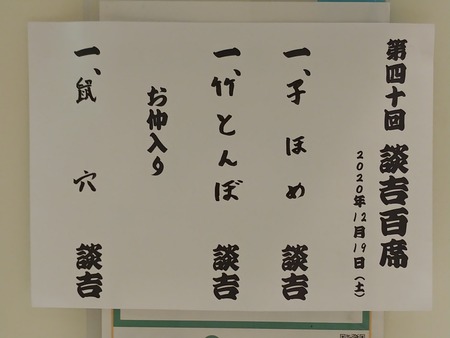 第四十回 談吉百席
2020年12月19日(土)
一、子ほめ 談吉
一、竹とんぼ 談吉
お仲入り
一、鼠穴 談吉